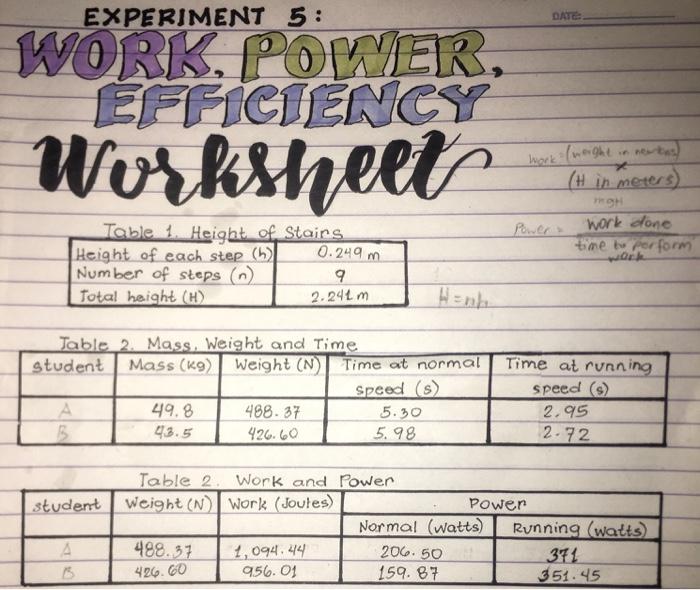 EXPERIMENT 5:
DATE:
WORK, POWER,
EFFICIENCY
Worksheet
Work = (weight in newtons)
x
(H in meters)
mgH
Power = work done
time to perform
work
Table 1. Height of Stairs
Height of each step (h) 0.249 m
Number of steps (n) 9
Total height (H) 2.241 m
H = nh
Table 2. Mass, Weight and Time
student Mass (kg) Weight (N) Time at normal speed (s) Time at running speed (s)
A 49.8 488.37 5.30 2.95
B 43.5 426.60 5.98 2.72
Table 2. Work and Power
student Weight (N) Work (Joules) Power
Normal (watts) Running (watts)
A 488.37 1,094.44 206.50 371
B 426.60 956.01 159.87 351.45